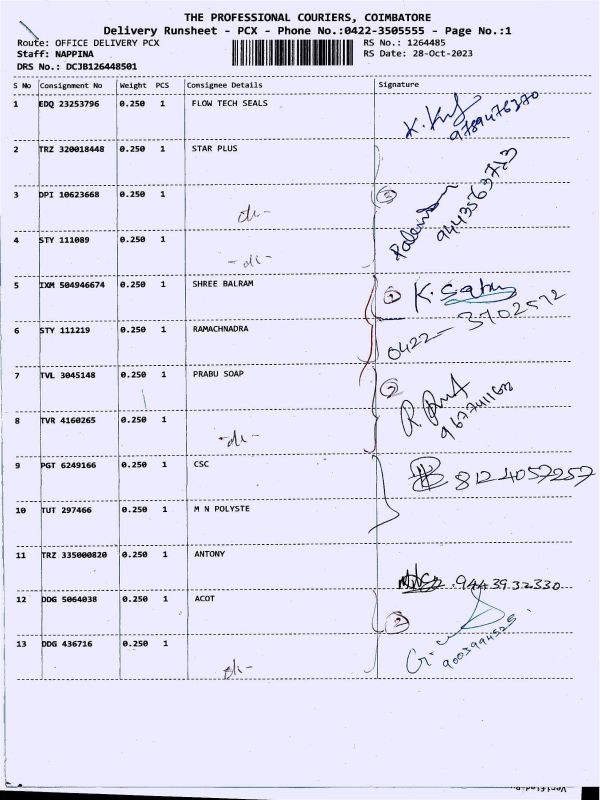 THE PROFESSIONAL COURIERS, COIMBATORE
Delivery Runsheet - PCX - Phone No.:0422-3505555 - Page No.:1
Route: OFFICE DELIVERY PCX RS No.: 1264485
Staff: NAPPINA RS Date: 28-Oct-2023
DRS No.: DCJB126448501
S No Consignment No Weight PCS Consignee Details Signature
1 EDQ 23253796 0.250 1 FLOW TECH SEALS
9789476370
2 TRZ 320018448 0.250 1 STAR PLUS
3 DPI 10623668 0.250 1 3
9443563723
4 STY 111089 0.250 1
5 IXM 504946674 0.250 1 SHREE BALRAM K. Sabu
6 STY 111219 0.250 1 RAMACHNADRA 0422-3702572
7 TVL 3045148 0.250 1 PRABU SOAP 2
8 TVR 4160265 0.250 1
9 PGT 6249166 0.250 1 CSC 8124057257
10 TUT 297466 0.250 1 M N POLYSTE
11 TRZ 335000820 0.250 1 ANTONY 9443932330
12 DDG 5064038 0.250 1 ACOT 2
13 DDG 436716 0.250 1 9003994525